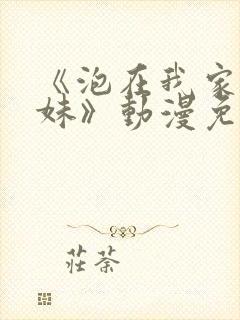 《泡在我家
妹》動漫免
莊荼